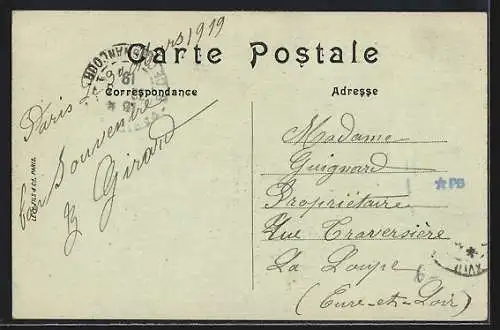 Carte Postale
Correspondance
Adresse
Paris 8 Mars 1919
Bon Souvenir
B Girard
Madame
Guignard
Propriétaire
Rue Traversière
La Loupe
(Eure-et-Loir)
*PB